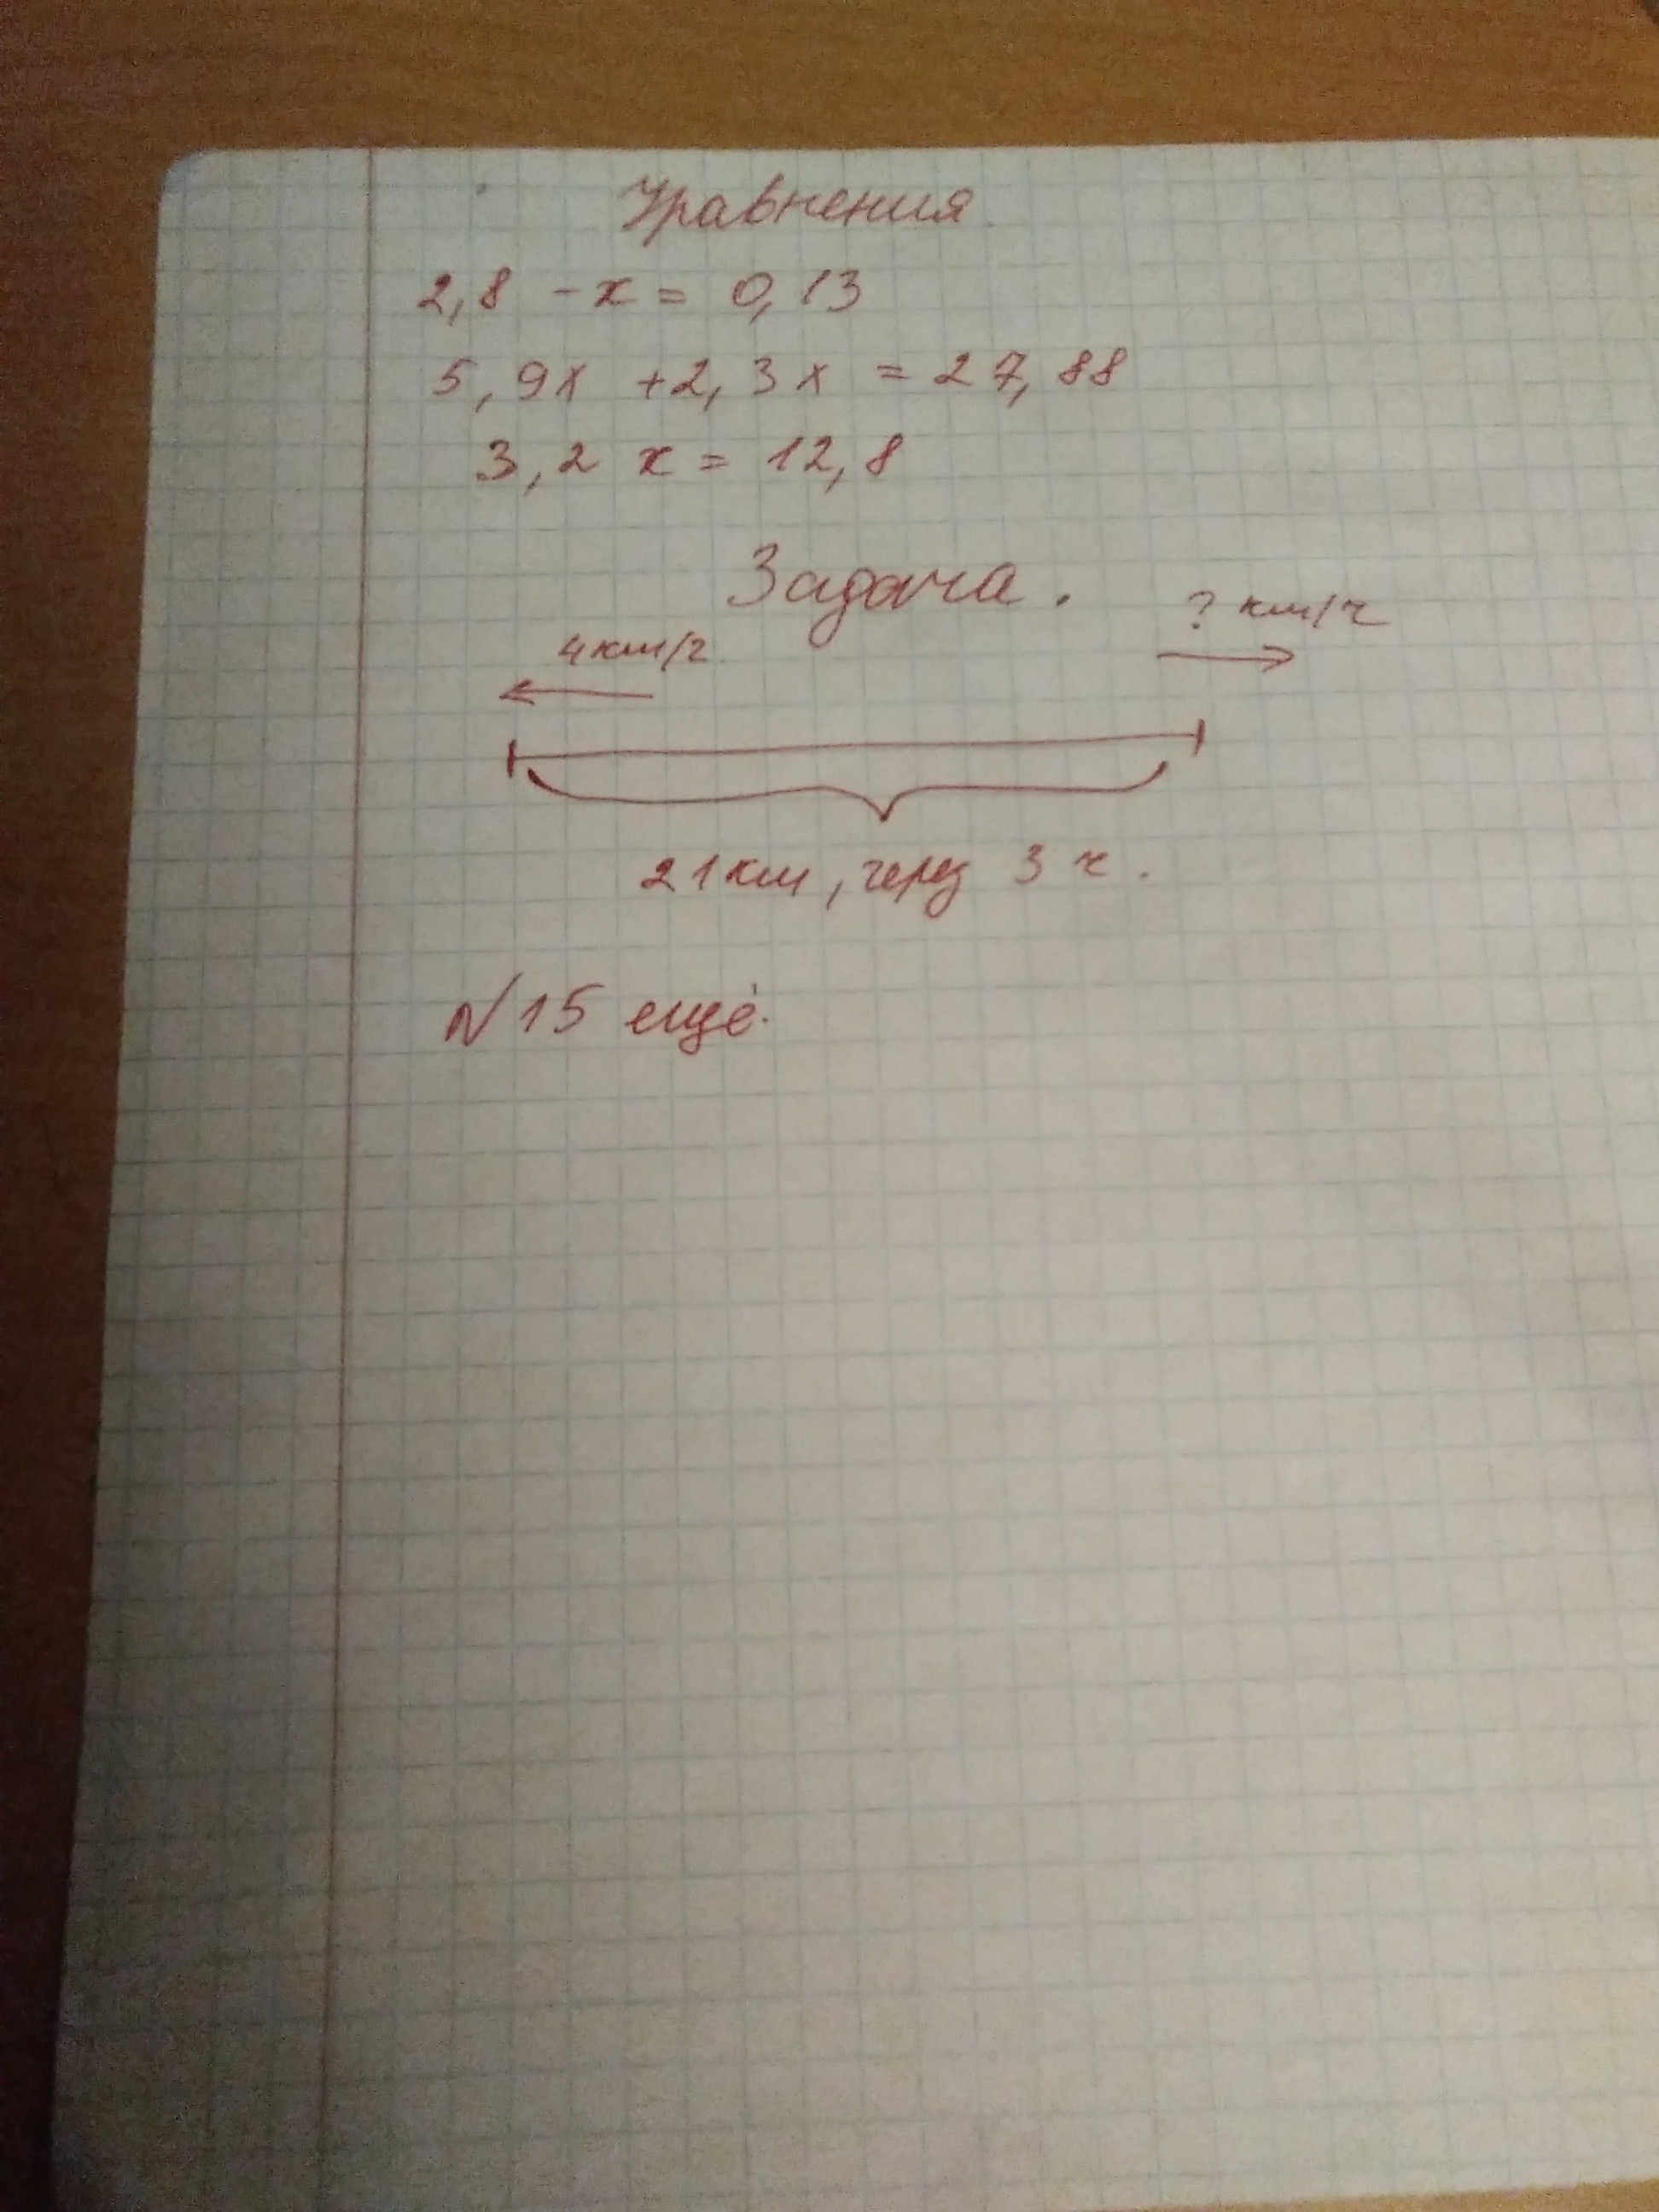 Уравнения
2,8 - x = 0,13
5,9x + 2,3x = 27,88
3,2 x = 12,8
Задача.
? км/ч
4км/ч
21км, через 3 ч.
№15 ещё.